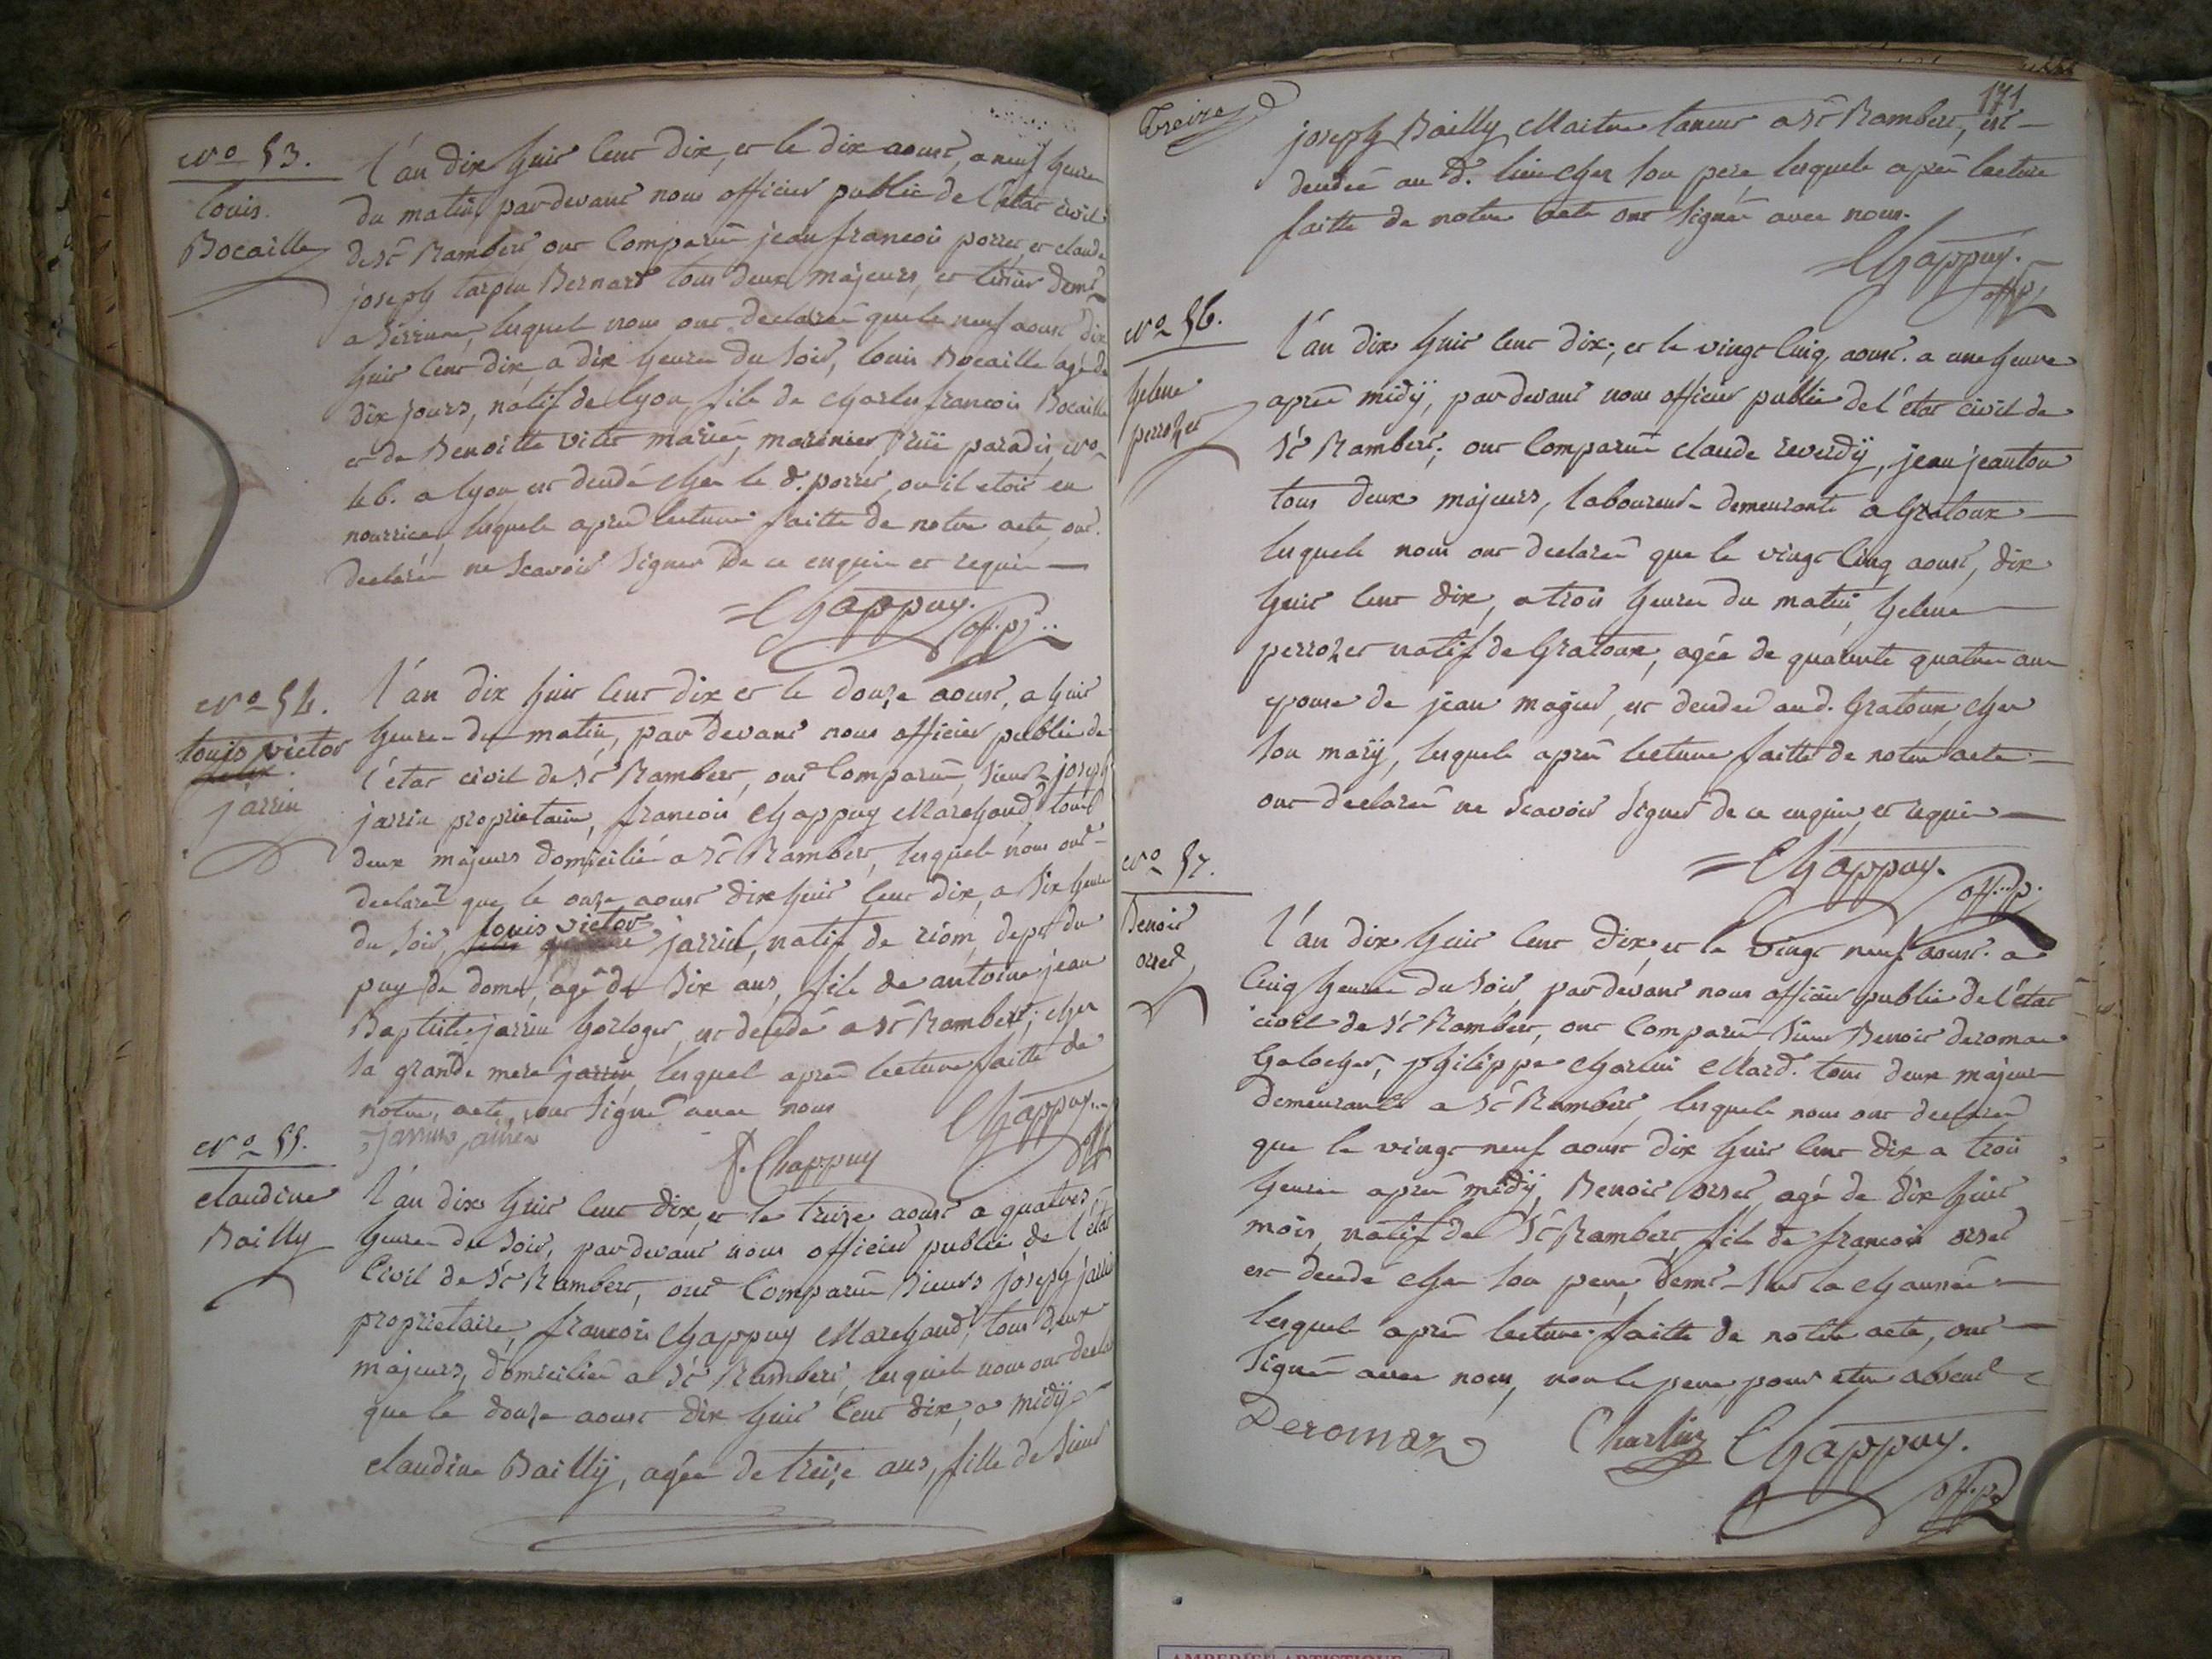 No 53.
Louis
Bocaille
L'an dix huit cent dix, et le dix aoust, a neuf heures
du matin, par devant nous officier public de l'état civil
de St Rambert ont comparu jean francois porret et claude
joseph tarpin Bernard tous deux majeurs, et tissier demt
a, lesquels nous ont declaré que le neuf aoust dix
huit cent dix, a dix heures du soir, Louis Bocaille agé de
dix jours, natif de lyon, fils de charles francois Bocaille
et de Benoitte vitet mariés, marinier, ruë paradis, No
46. a lyon est decedé chés le d. porret, ou il etoit en
nourrice, lesquels après lecture faitte de notre acte, ont
declaré ne scavoir signer de ce enquis et requis
Chappuy.
off. p.
No 54.
Louis victor
jarrin
L'an dix huit cent dix et le douze aoust, a huit
heures du matin, par devant nous officier public de
l'état civil de St Rambert, ont comparu, sieurs joseph
jarrin proprietaire, francois Chappuy Marchand, tous
deux majeurs domiciliés a St Rambert, lesquels nous ont
declaré que le onze aoust dix huit cent dix, a six heures
du soir, louis victor jarrin, natif de riom, dept du
puy de dome, agé de six ans, fils de antoine jean
Baptiste jarrin horloger, est decedé a St Rambert, chez
sa grande mere jarrin, lesquels après lecture faitte de
notre acte, ont signé avec nous
jarrin, ainé
f. Chappuy
Chappuy
off. p.
No 55.
claudine
Bailly
L'an dix huit cent dix, et le treize aoust a quatres
heures du soir, par devant nous officier public de l'état
Civil de St Rambert, ont comparu sieurs joseph jarrin
proprietaire, francois Chappuy Marchand, tous deux
majeurs, domiciliés a St Rambert, lesquels nous ont declaré
que le douze aoust dix huit cent dix, a midÿ
claudine Baillÿ, agée de treize ans, fille de sieur
171
Treize
joseph Bailly Maitre taneur a St Rambert, est
decedée au d. lieu chez son pere, lesquels après lecture
faitte de notre acte ont signés avec nous.
Chappuy.
off. p.
No 56.
helene
perrozet
L'an dix huit cent dix, et le vingt cinq aoust. a une heure
après midÿ, par devant nous officier public de l'état civil de
St Rambert, ont comparu claude reverdÿ, jean jeanton
tous deux majeurs, laboureurs demeurants a Gratoux
lesquels nous ont declaré que le vingt cinq aoust, dix
huit cent dix, a trois heures du matin, helene
perrozet natif de Gratoux, agée de quarente quatre ans
epouse de jean magied, est decedée au d. Gratoux, chez
son marÿ, lesquels après lecture faitte de notre acte
ont declaré ne scavoir signer de ce enquis, et requis
Chappuy.
off. p.
No 57.
Benoit
orset
L'an dix huit cent dix, et le vingt neuf aoust. a
cinq heures du soir, par devant nous officier public de l'état
civil de St Rambert, ont comparu sieurs Benoit deromas
Galocher, philippe charlin Mard. tous deux majeurs
demeurants a St Rambert, lesquels nous ont declaré
que le vingt neuf aoust dix huit cent dix a trois
heures après midÿ, Benoit orset, agé de dix huit
mois, natif de St Rambert, fils de francois orset
est decedé chez son pere, demt sur la chaussée
lesquels après lecture faitte de notre acte, ont
signés avec nous, non le pere pour etre absent
Deromaz
Charlin
Chappuy.
off. p.